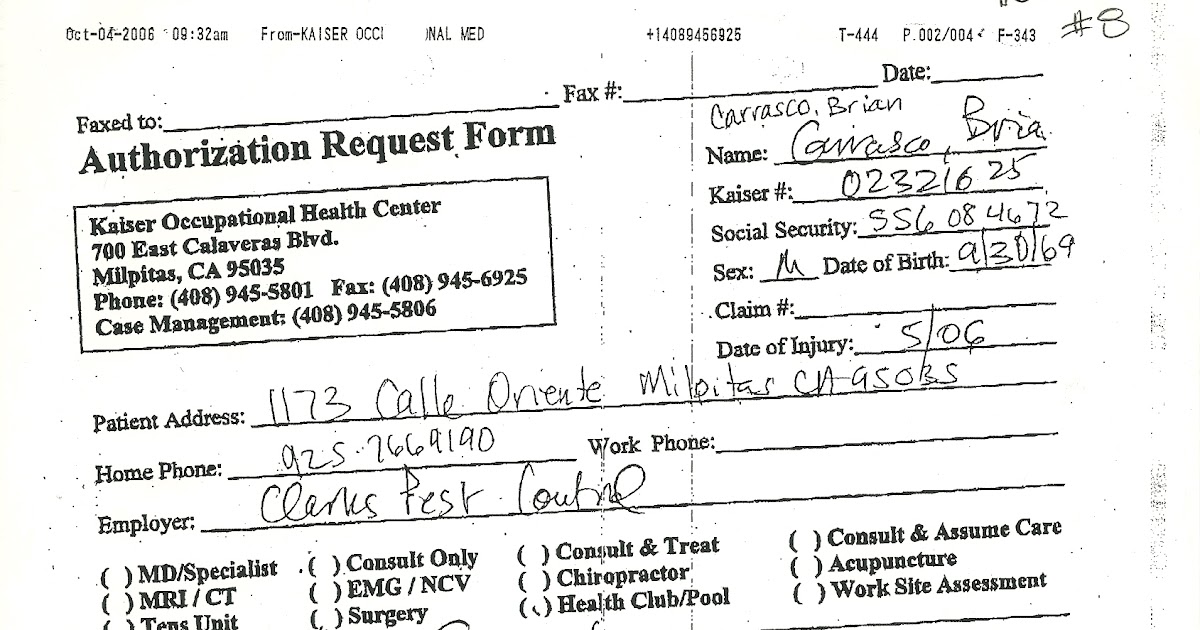 #8
Oct-04-2006 09:32am From-KAISER OCCI NAL MED +14089456925 T-444 P.002/004 F-343
Faxed to: Fax #: Date:
Authorization Request Form
Kaiser Occupational Health Center
700 East Calaveras Blvd.
Milpitas, CA 95035
Phone: (408) 945-5801 Fax: (408) 945-6925
Case Management: (408) 945-5806
Carrasco, Brian
Name: Carrasco, Bria
Kaiser #: 02321625
Social Security: 556 08 4672
Sex: M Date of Birth: 9/30/69
Claim #:
Date of Injury: 5/06
Patient Address: 1173 Calle Oriente Milpitas CA 95035
Home Phone: 925.7669190 Work Phone:
Employer: Clarks Pest Control
( ) MD/Specialist ( ) Consult Only ( ) Consult & Treat ( ) Consult & Assume Care
( ) MRI / CT ( ) EMG / NCV ( ) Chiropractor ( ) Acupuncture
( ) Tens Unit ( ) Surgery ( ) Health Club/Pool ( ) Work Site Assessment